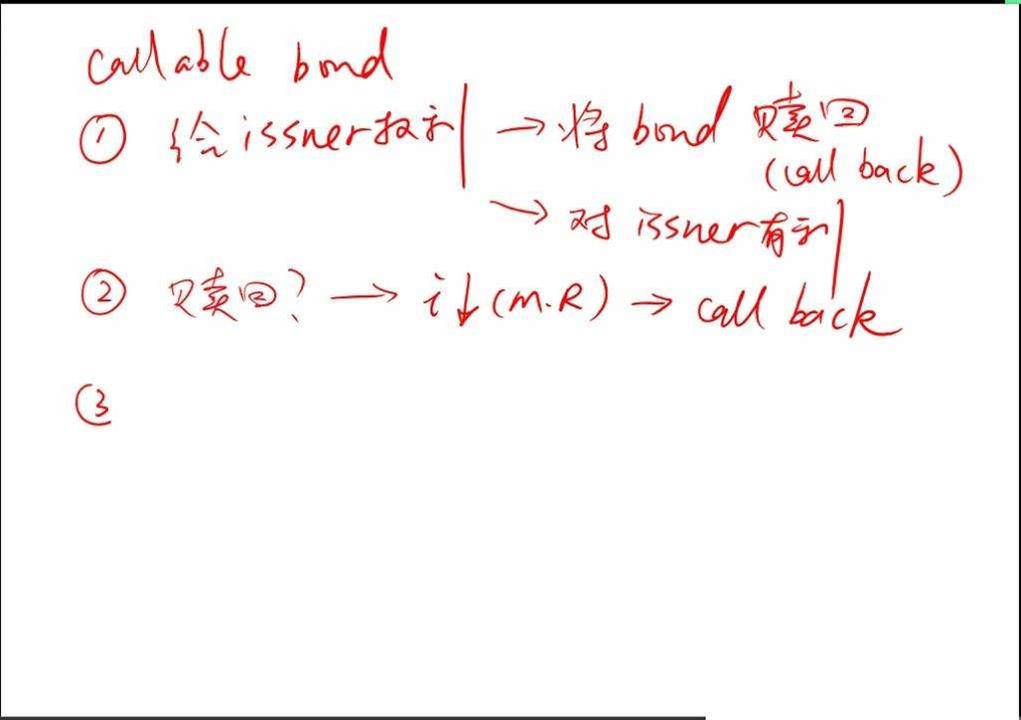 callable bond
① 给issuer权利 → 将 bond 赎回
(call back)
→ 对 issuer有利
② 赎回? → i↓(m.R) → call back
③